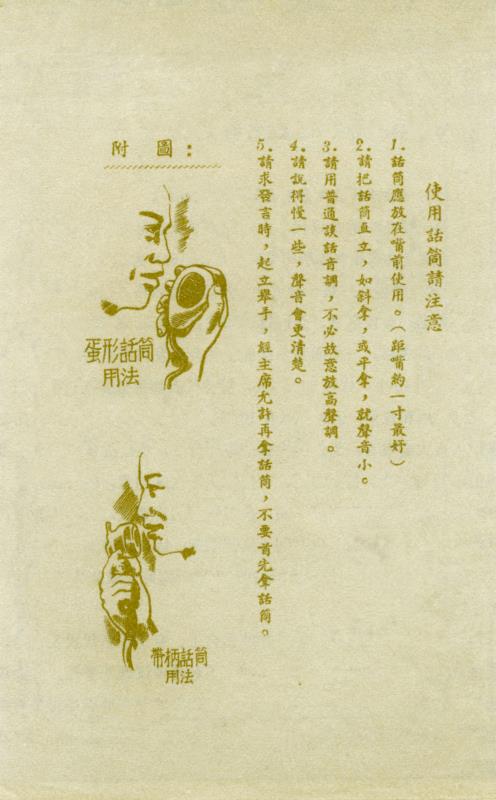 使用話筒請注意
1.話筒應放在嘴前使用。(距嘴約一寸最好)
2.請把話筒直立,如斜拿,或平拿,就聲音小。
3.請用普通談話音調,不必故意放高聲調。
4.請說得慢一些,聲音會更清楚。
5.請求發言時,起立舉手,經主席允許再拿話筒,不要首先拿話筒。
附圖:
蛋形話筒
用法
帶柄話筒
用法